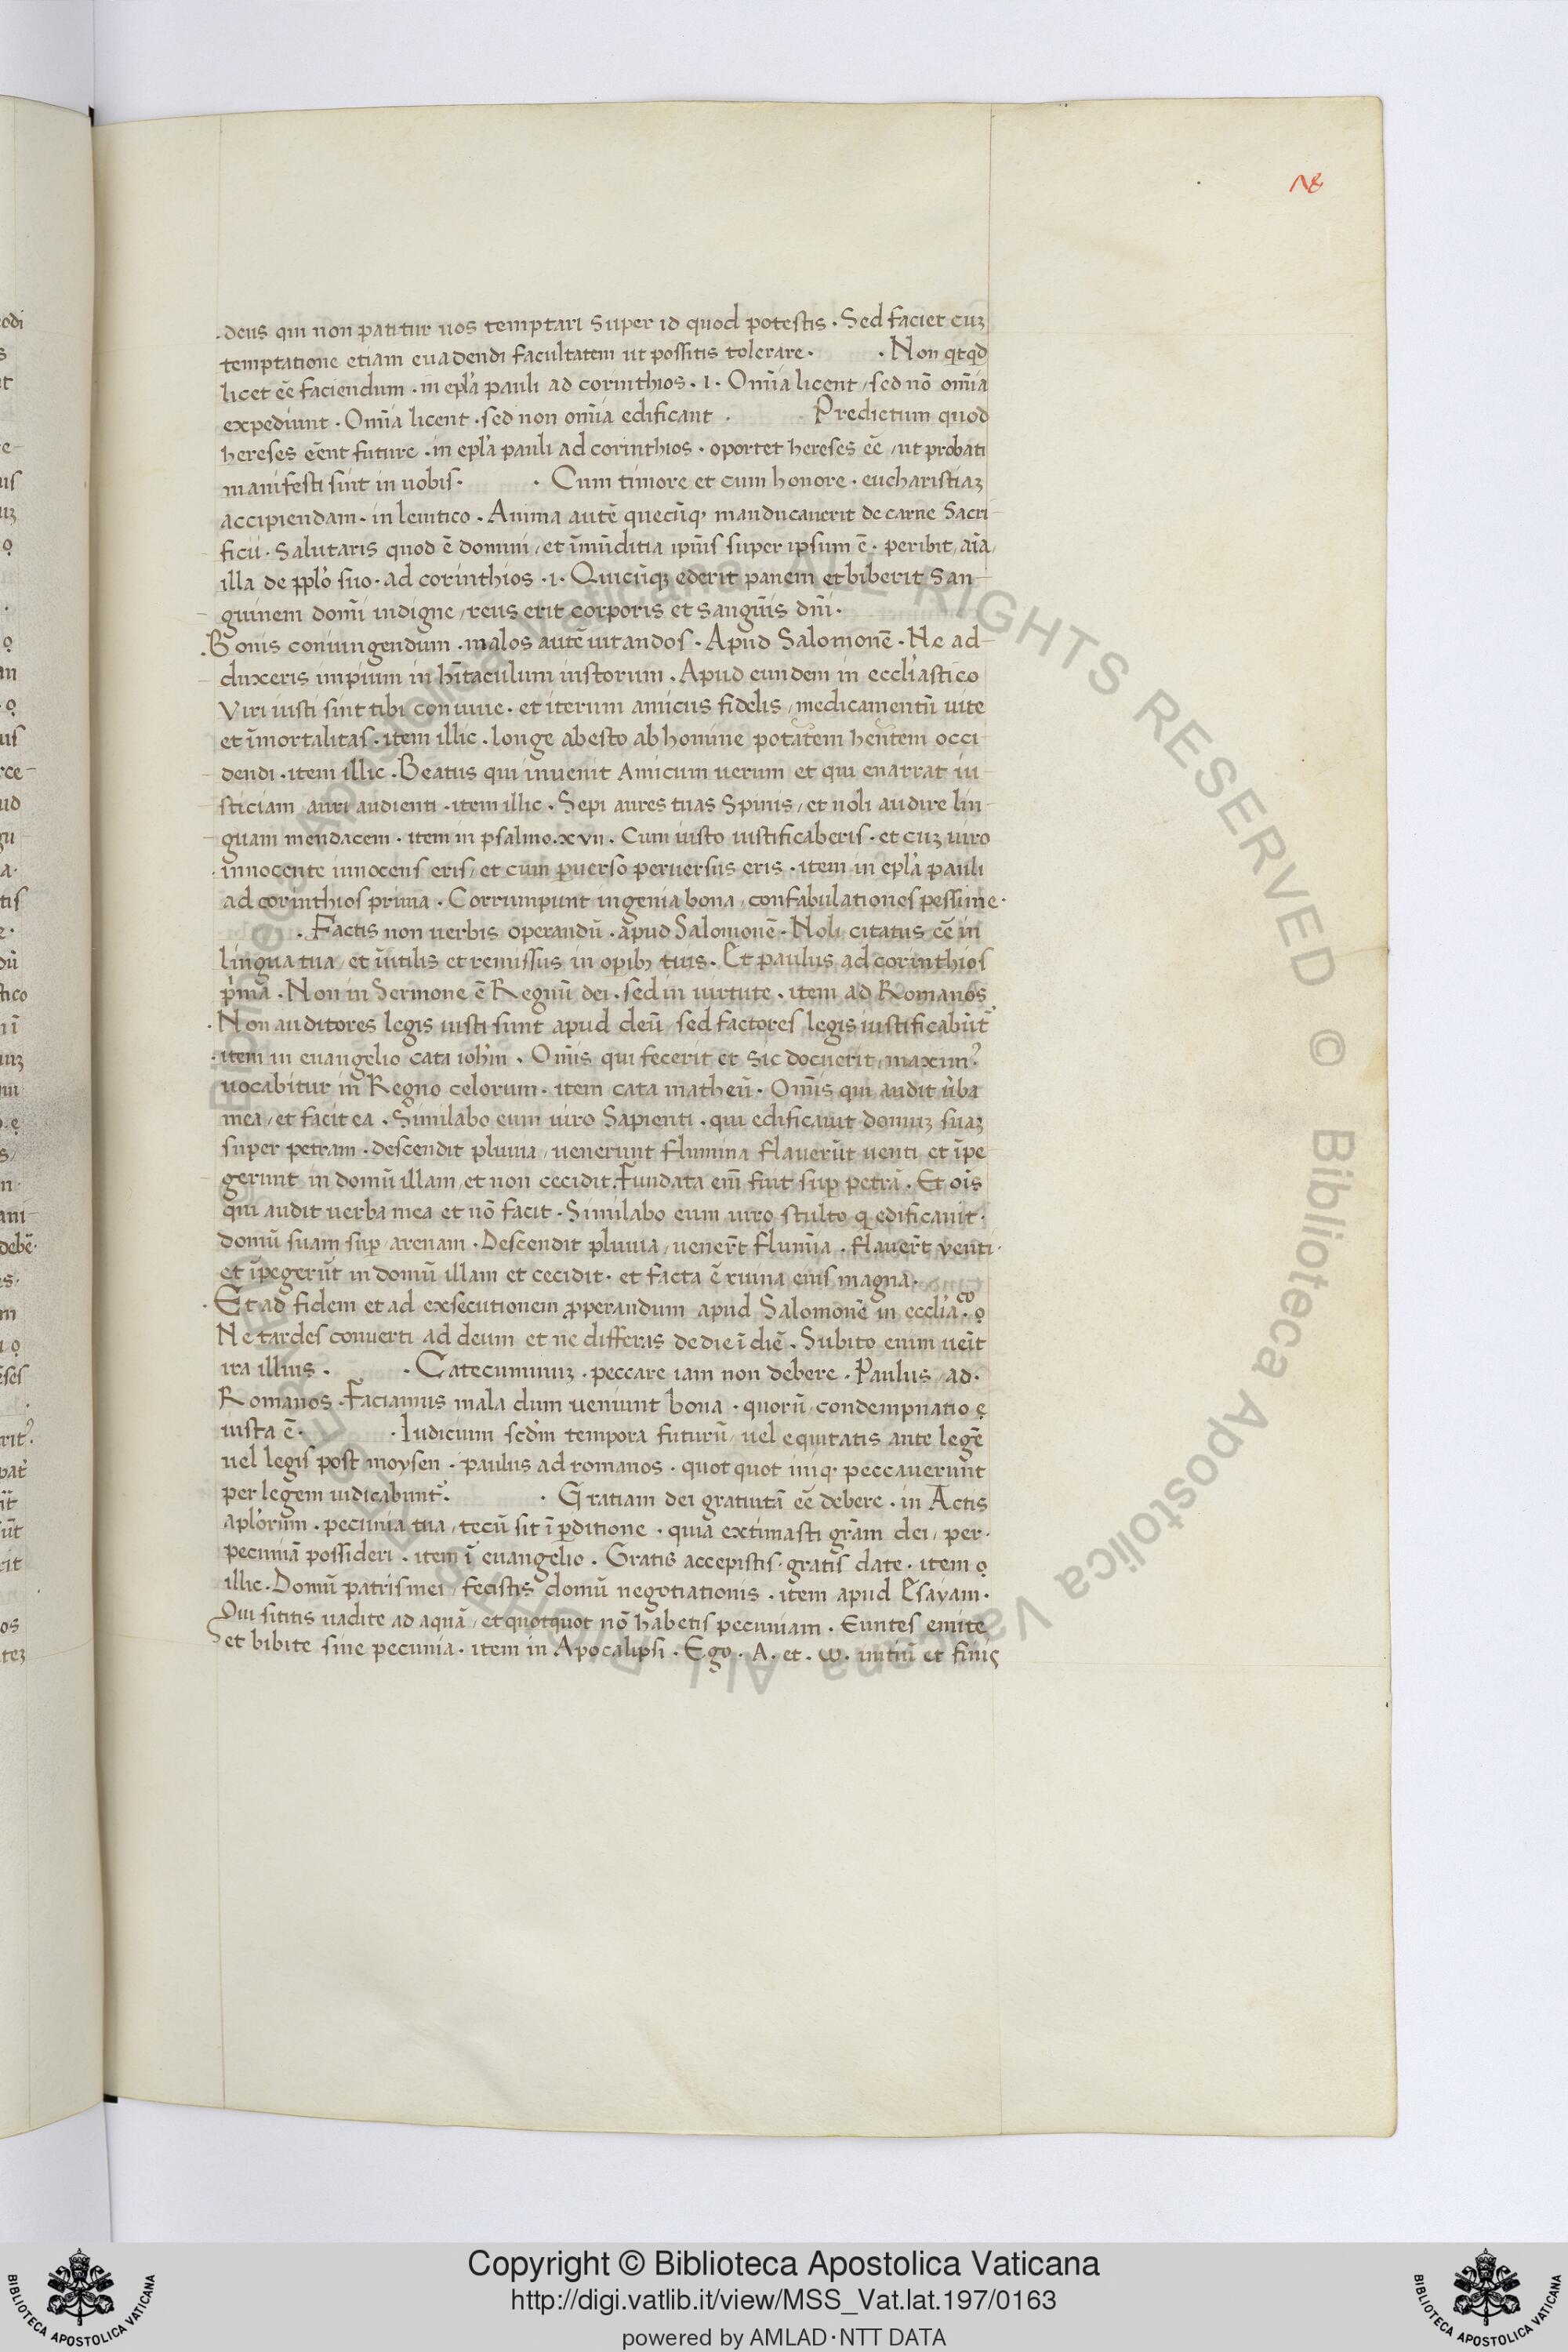 78
deus qui non patitur uos temptari super id quod potestis · Sed faciet cuꝫ
temptatione etiam euadendi facultatem ut possitis tolerare · · Non qͥcqͥd
licet eē faciendum · in epl̃a pauli ad corinthios · 1 · Om̃ia licent / sed nō om̃ia
expediunt · Om̃ia licent · sed non om̃ia edificant · Predictum quod
hereses eēnt future · in epl̃a pauli ad corinthios · oportet hereses eē / ut probati
manifesti sint in uobis · · Cum timore et cum honore · eucharistiaꝫ
accipiendam · in leuitico · Anima autē quecūqꝫ manducauerit de carne Sacri
ficii · salutaris quod ē domini / et īmūditia ipīus super ipsum ē · peribit / aīa /
illa de ppl̃o suo · ad corinthios · 1 · Quicūqꝫ ederit panem et biberit San-
guinem domī indigne / reus erit corporis et sanguīs dn̄i ·
Bonis coniungendum · malos autē uitandos · Apud Salomonē · Ne ad-
duxeris impium in hītaculum iustorum · Apud eundem in eccl̃iastico
Viri iusti sint tibi conuiue · et iterum amicus fidelis / medicamentū uite
et īmortalitas · item illic · longe abesto ab homine potatem hēntem occi
dendi · item illic · Beatus qui inuenit Amicum uerum et qui enarrat iu
sticiam auri audienti · item illic · Sepi aures tuas Spinis / et noli audire lin
guam mendacem · item in psalmo · xvii · Cum iusto iustificaberis · et cuꝫ uiro
innocente innocens eris / et cum ꝑuerso peruersus eris · item in epl̃a pauli
ad corinthios prima · Corrumpunt ingenia bona / confabulationes pessime ·
· Factis non uerbis operandū · apud Salomonē · Noli citatus eē in
lingua tua / et īutilis et remissus in operibꝫ tuis · Et paulus ad corinthios
pͥma · Non in Sermone ē Regnū dei · sed in uirtute · item ad Romanos
· Non auditores legis iusti sunt apud deū / sed factores legis iustificabūt᷑
· item in euangelio cata ioh̃m · Om̃is qui fecerit et sic docuerit / maxim᷒
uocabitur in Regno celorum · item cata matheū · Om̃is qui audit ūba
mea / et facit ea · Similabo eum uiro Sapienti · qui edificauit domuꝫ suaꝫ
super petram · descendit pluuia / uenerunt flumina flauerūt uenti et īpe
gerunt in domū illam / et non cecidit · Fundata em̃ fuit suꝑ petrā · Et oīs
qui audit uerba mea et nō facit · Similabo eum uiro stulto q edificauit ·
domū suam suꝑ arenam · Descendit pluuia / uenerīt flumīa · flauerīt venti ·
et īpegerūt in domū illam et cecidit · et facta ē ruina eius magna ·
· Et ad fidem et ad exsecutionem ꝓperandum apud Salomonē in eccl̃iaͨͦ · o
Ne tardes conuerti ad deum et ne differas de die ī diē · Subito enim ueīt
ira illius · · Catecuminuꝫ · peccare iam non debere · Paulus / ad ·
Romanos · Faciamus mala dum ueniunt bona · quorū / condempnatio
iusta ē · · Iudicium scd̃m tempora futurū / uel equitatis ante legē
uel legis post moysen · paulus ad romanos · quot quot iniqͥ peccauerunt
per legem iudicabunt᷑ · · Gratiam dei gratuitā eē debere · in Actis
apl̃orum · pecunia tua / tecū sit ī ꝑditione · quia extimasti gr̃am dei / per ·
pecuniā possideri · item ī euangelio · Gratis accepistis · gratis date · item
illic · Domū patris mei / fecistis domū negotiationis · item apud Esayam ·
Qui sititis uadite ad aquā / et quotquot nō habetis pecuniam · Euntes emite
et bibite sine pecunia · item in Apocalipsi · Ego · A · et · ω · initiū et finis
Biblioteca Apostolica Vaticana ALL RIGHTS RESERVED ©
Copyright © Biblioteca Apostolica Vaticana
http://digi.vatlib.it/view/MSS_Vat.lat.197/0163
powered by AMLAD·NTT DATA
BIBLIOTECA APOSTOLICA VATICANA
BIBLIOTECA APOSTOLICA VATICANA